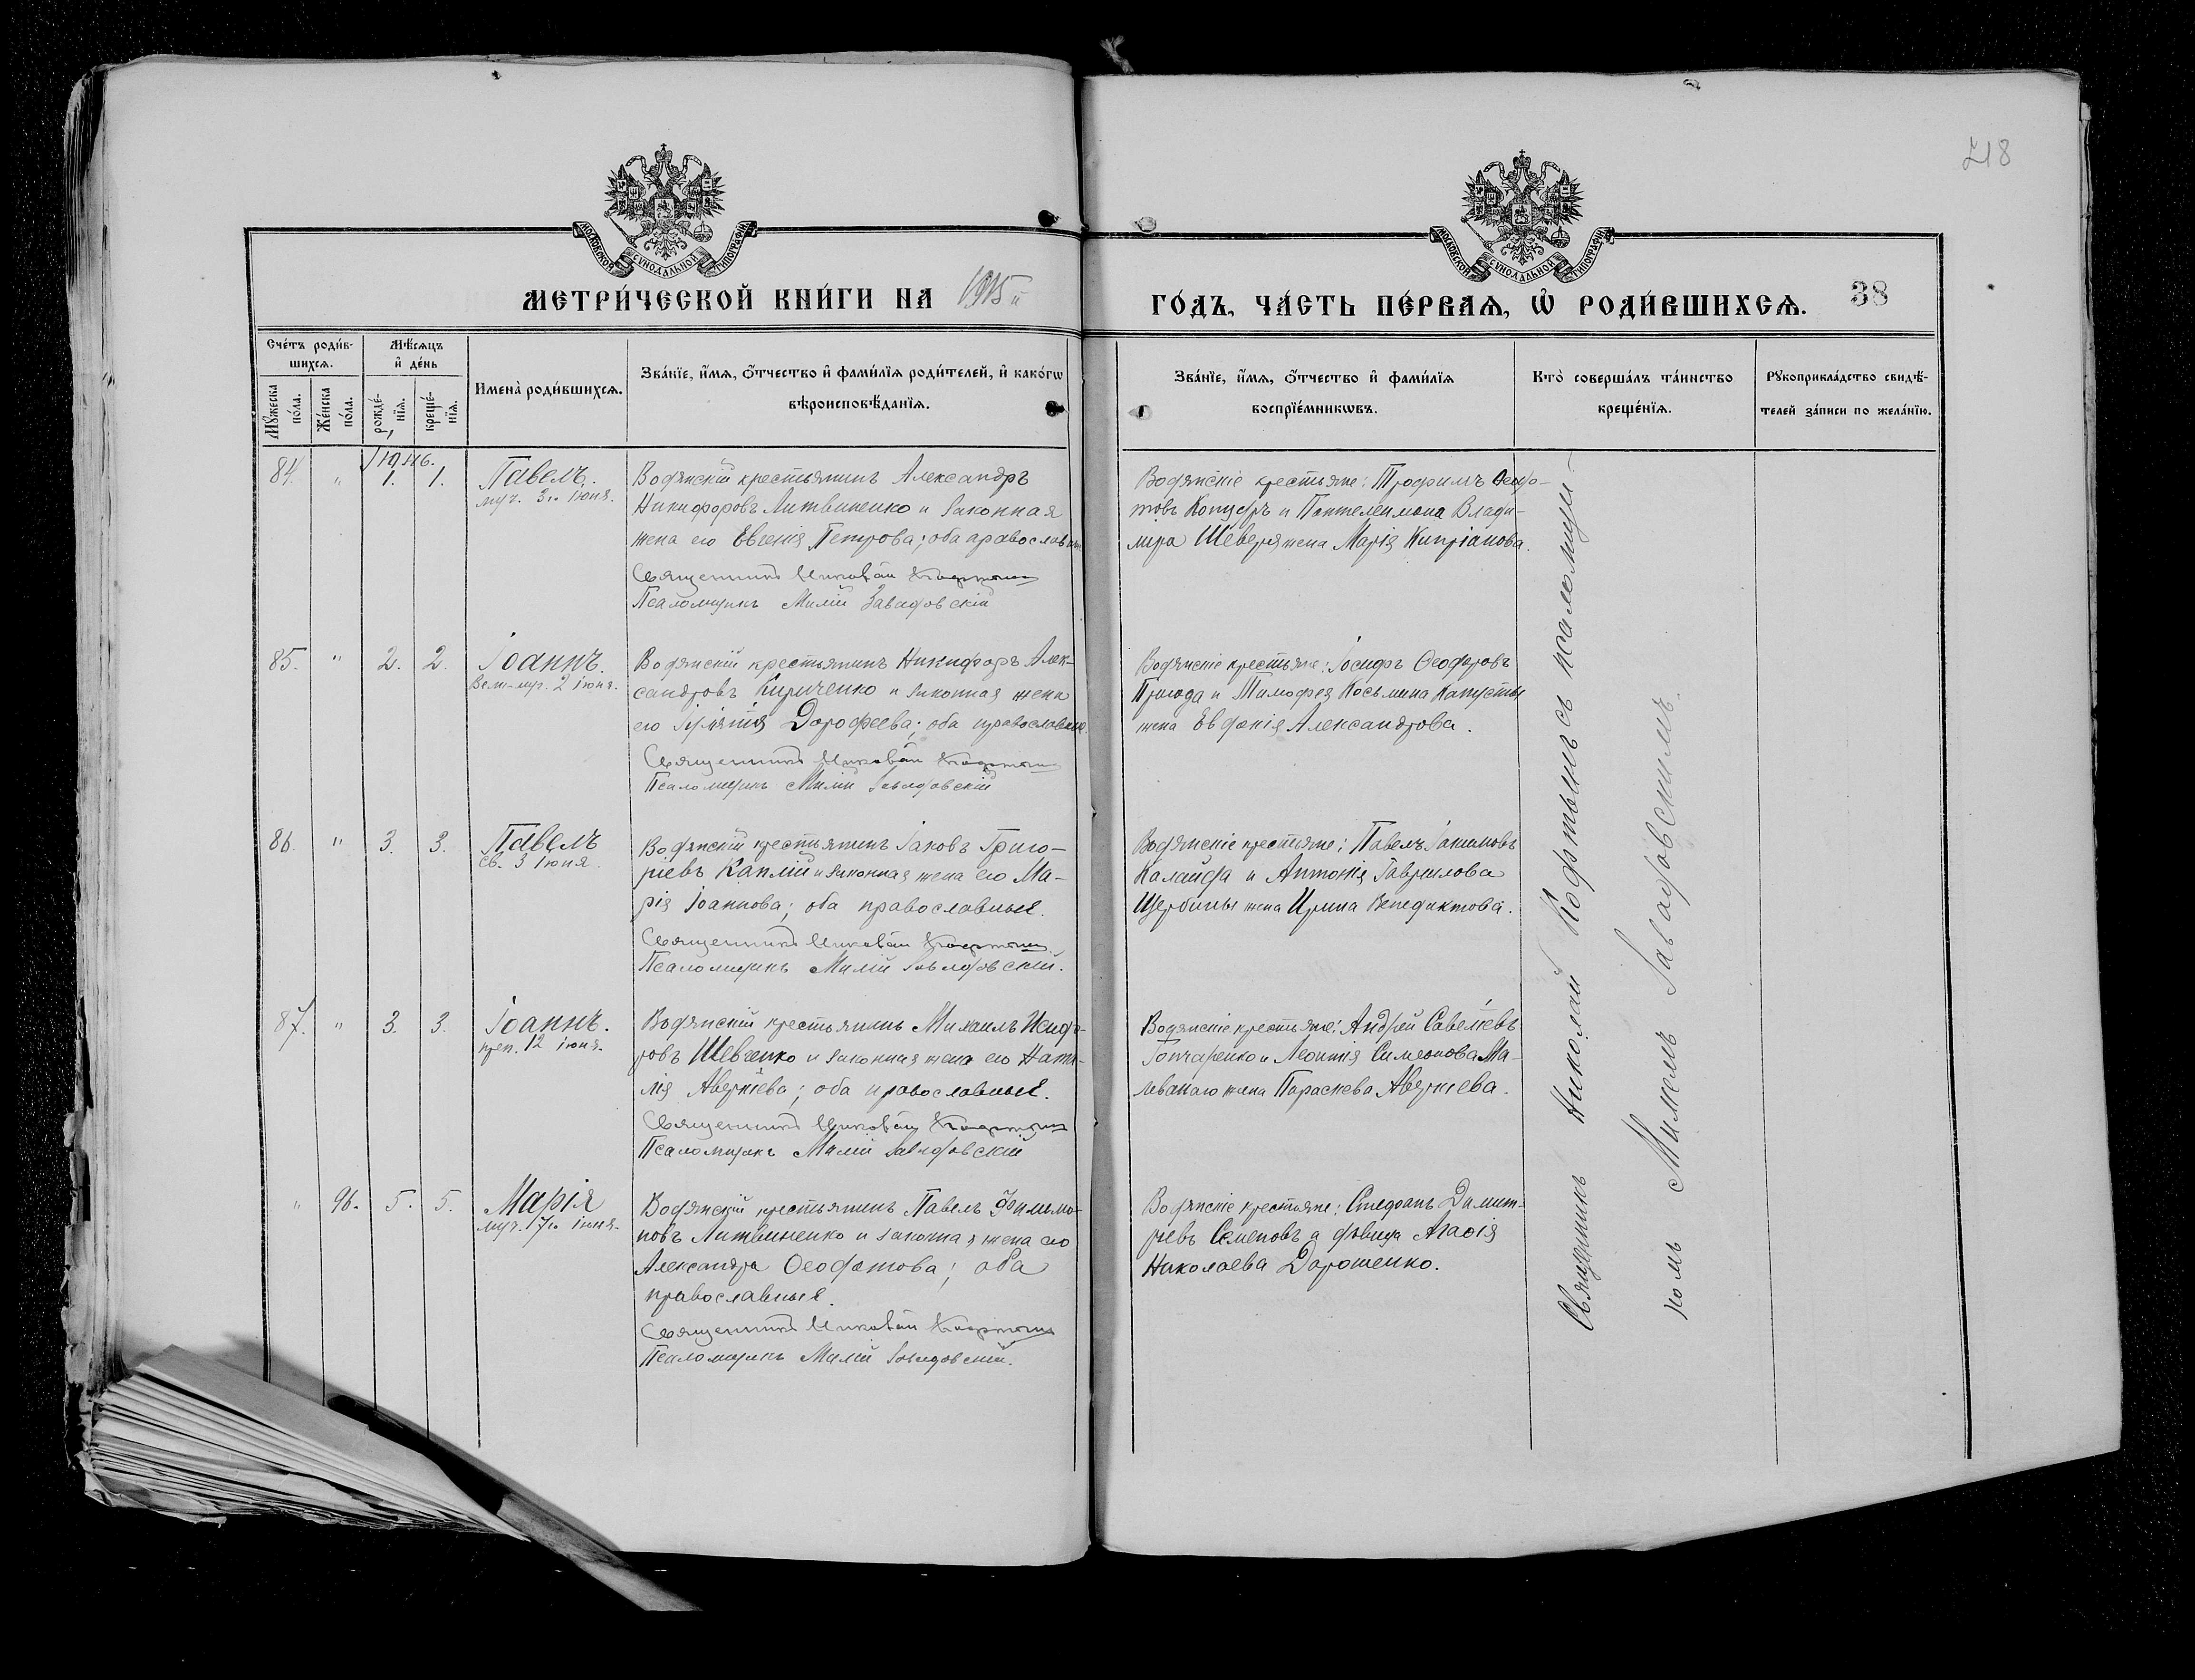 718
МОСКОВСКОЙ СѴНОДАЛЬНОЙ ТИПОГРАФІИ
МОСКОВСКОЙ СѴНОДАЛЬНОЙ ТИПОГРАФІИ
МЕТРИ́ЧЕСКОЙ КНИ́ГИ НА 1915й
ГО́ДЪ, ЧА́СТЬ ПЕ́РВАѦ, Ѡ҆ РОДИ́ВШИХСѦ. 38
Сче́тъ роди́в-
шихсѧ.
Мꙋ́жеска
по́ла.
Же́нска
по́ла.
Мѣ́сѧцъ
и҆ де́нь
рожде́-
нїѧ.
креще́-
нїѧ.
Имена̀ роди́вшихсѧ.
Зва́нїе, и҆́мѧ, ѻ҆́тчество и҆ фами́лїѧ роди́телей, и҆ како́гѡ
вѣроисповѣ́данїѧ.
Зва́нїе, и҆́мѧ, ѻ҆́тчество и҆ фами́лїѧ
воспрїе́мникѡвъ.
Кто̀ соверша́лъ та́инство
креще́нїѧ.
Рꙋкоприкла́дство свидѣ́-
телей за́писи по жела́нїю.
Іюнь.
84. " 1. 1. Павелъ.
муч. 3го іюня.
Водянскій крестьянинъ Александръ
Никифоровъ Литвиненко и законная
жена его Евгенія Петрова; оба православные
Священникъ Николай
Псаломщикъ Милій Завадовскій
Водянскіе крестьяне: Трофимъ Ѳеодо-
товъ и Пантелеимона Влади-
мира жена Марія Кипріанова.
85. " 2. 2. Іоаннъ.
Вел-муч. 2 іюня.
Водянскій крестьянинъ Никифоръ Алек-
сандровъ Кириченко и законная жена
его Дорофеева; оба православные.
Священникъ Николай
Псаломщикъ Милій Завадовскій
Водянскіе крестьяне: Іосифъ Ѳеодоровъ
Пригода и Тимофея Косьмина Капусты
жена Евдокія Александрова.
86. " 3. 3. Павелъ
св. 3 іюня.
Водянскій крестьянинъ Іаковъ Григо-
ріевъ Каплій и законная жена его Ма-
рія Іоаннова; оба православные.
Священникъ Николай
Псаломщикъ Милій Завадовскій.
Водянскіе крестьяне: Павелъ Іакимовъ
Калайда и Антонія Гавриилова
Щербины жена Ирина Венедиктова.
87. " 3. 3. Іоаннъ.
преп. 12 іюня.
Водянскій крестьянинъ Михаилъ Исидо-
ровъ Шевченко и законная жена его Ната-
лія Аверкіева; оба православные.
Священникъ Николай
Псаломщикъ Милій Завадовскій
Водянскіе крестьяне: Андрей Савеліевъ
Гончаренко и Леонтія Симеонова Ма-
леванаго жена Параскева Аверкіева.
" 96. 5. 5. Марія
муч. 17го іюня.
Водянскій крестьянинъ Павелъ Филимо-
новъ Литвиненко и законная жена его
Александра Ѳеодотова; оба
православные.
Священникъ Николай
Псаломщикъ Милій Завадовскій.
Водянскіе крестьяне: Стефанъ Димит-
ріевъ Семеновъ а дѣвица Агаѳія
Николаева Дорошенко.
Священникъ Николай съ псаломщи-
комъ Милiемъ Завадовскимъ.